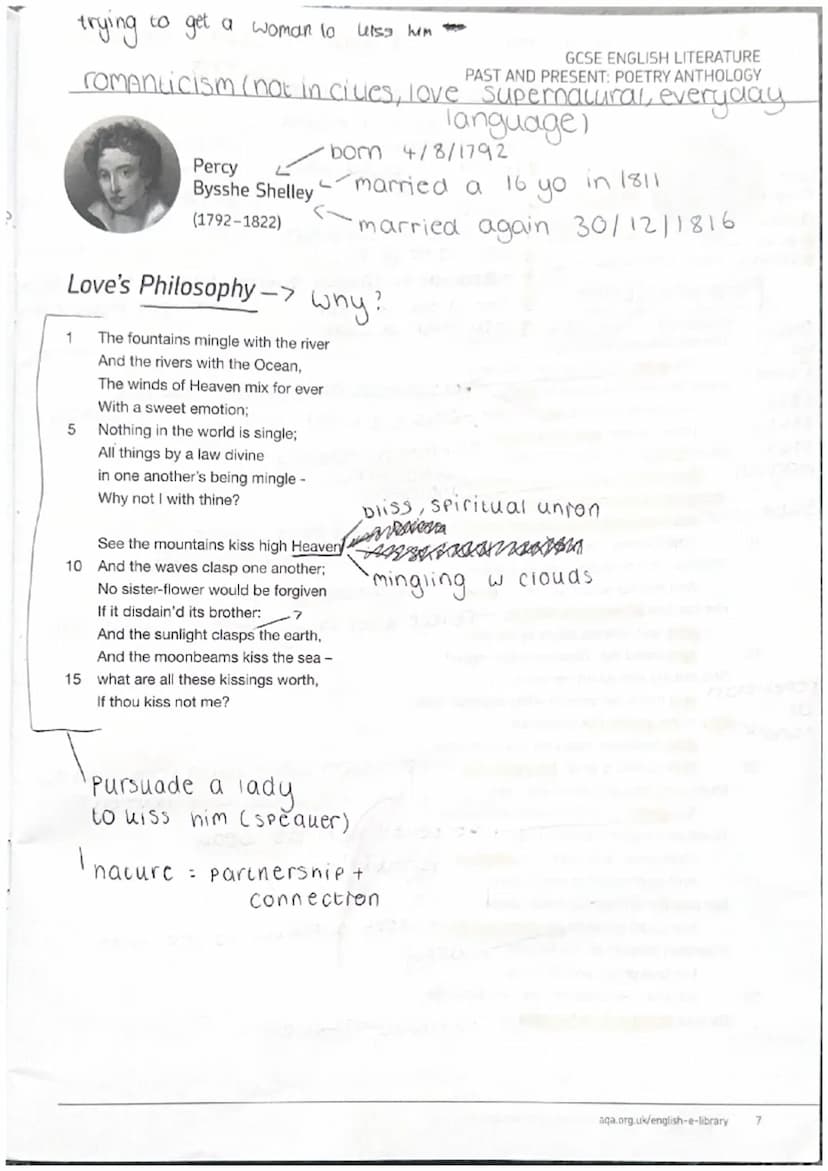 trying to get a woman to kiss him
GCSE ENGLISH LITERATURE
PAST AND PRESENT: POETRY ANTHOLOGY
romanticism (not in cities, love supernatural, everyday
language)
born 4/8/1792
Percy
Bysshe Shelley
married a 16 yo in 1811
(1792–1822)
married again 30/12/1816
Love's Philosophy → why?
1 The fountains mingle with the river
And the rivers with the Ocean,
The winds of Heaven mix for ever
With a sweet emotion;
5 Nothing in the world is single;
All things by a law divine
in one another's being mingle -
Why not I with thine?
bliss, spiritual union
See the mountains kiss high Heaven
10 And the waves clasp one another;
mingling w clouds
No sister-flower would be forgiven
If it disdain'd its brother:
And the sunlight clasps the earth,
And the moonbeams kiss the sea –
15 what are all these kissings worth,
If thou kiss not me?
pursuade a lady
to kiss him (speaker)
nature = partnership +
connection
aqa.org.uk/english-e-library 7